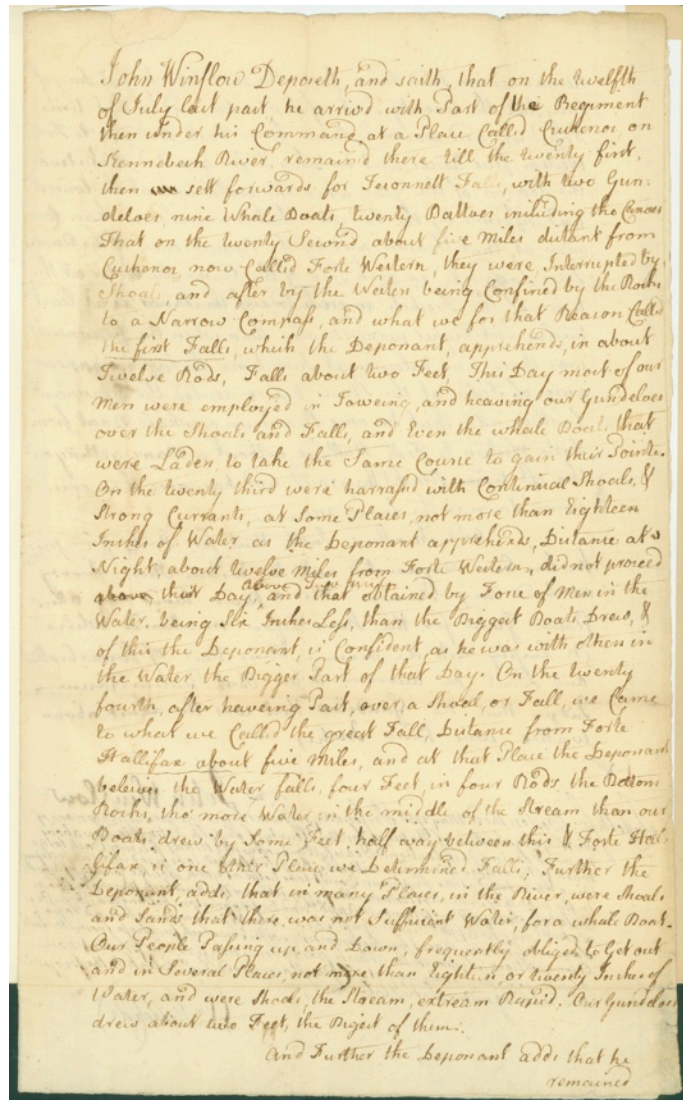 John Winslow Deposeth, and saith, that on the twelfth
of July last past, he arrivd with Part of the Regiment
then under his Command, at a Place Called Cushenoc on
Kennebeck River, remained there till the twenty first,
then sett forwards for Teconnett Falls, with two Gun:
deloes, nine Whale Boats, twenty Battoes including the Canoes
That on the twenty Second about five Miles distant from
Cushenoc now Called Forte Western, they were Interrupted by
Shoals, and after by the Water being Confined by the Rocks
to a Narrow Compass, and what we for that Reason Called
the first Falls, which the Deponant, apprehends, in about
Twelve Rods, Falls about two Feet, This Day most of our
Men were employed in Toweing, and heaving our Gundeloes
over the Shoals and Falls, and Even the whale Boats that
were Laden to take the Same Course to gain their Pointe.
On the twenty third were harrassd with Continual Shoals, &
Strong Currants, at Some Places, not more than Eighteen
Inches of Water as the Deponant apprehends, Distance at
Night, about twelve Miles from Forte Western, did not proceed
that Day, above two Miles and that obtained by Force of Men in the
Water, being Six Inches Less, than the Biggest Boats Drew, &
of this the Deponant, is Confident, as he was with others in
the Water, the Bigger Part of that Day. On the twenty
fourth, after haveing Past, over, a Shoal, or Fall, we Came
to what we Called the great Fall, Distance from Forte
Hallifax about five Miles, and at that Place the Deponant
beleives the Water falls, four Feet, in four Rods the Bottom
Rocks, tho' more Water in the middle of the Stream than our
Boats, drew by Some Feet, half way between this & Forte Hal-
lifax, is one other Place we Determined Falls, Further the
Deponant, adds, that in many Places, in the River, were Shoals
and Sands that there was not Sufficient Water, for a whale Boat.
Our People Passing up, and Down, frequently obliged to Get out
and in Several Places not more than Eighteen, or twenty Inches of
Water, and were Shoals, the Stream, extream Rapid. Our Gundeloes
drew about two Feet, the Bigest of them.
And Further the Deponant adds that he
remained